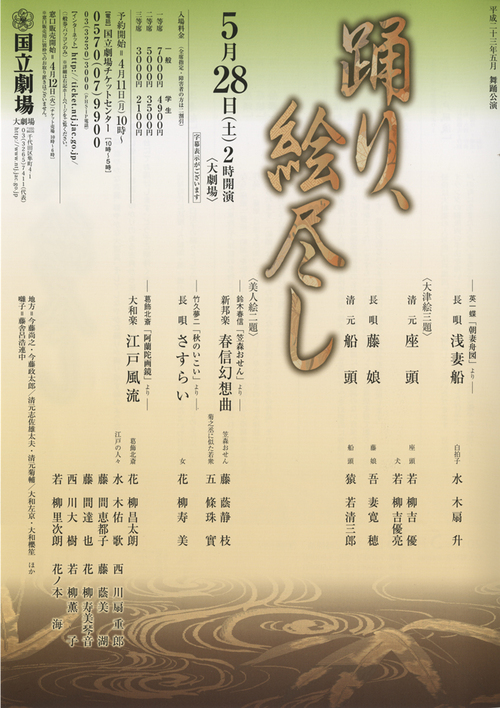 平成二十三年五月 舞踊公演
踊り、
絵尽し
5月28日(土)2時開演
〈大劇場〉
字幕表示がございます
入場料金
一般 学生
一等席 7000円 4900円
二等席 5000円 3500円
三等席 3000円 2100円
予約開始=4月11日(月)10時〜
【電話】国立劇場チケットセンター[10時〜6時]
0570-07-9900
【インターネット】http://ticket.ntj.jac.go.jp/
窓口販売開始=4月12日(火)
国立劇場
大劇場
——英一蝶「朝妻舟図」より——
長唄 浅妻船
白拍子 水木扇升
〈大津絵三題〉
清元 座頭
座頭 若柳吉優
犬 若柳吉優亮
長唄 藤娘
藤娘 吾妻寛穂
清元 船頭
船頭 猿若清三郎
〈美人絵二題〉
——鈴木春信「笠森おせん」より——
新邦楽 春信幻想曲
笠森おせん 藤蔭静枝
菊之丞に似た若衆 五條珠實
——竹久夢二「秋のいこい」より——
長唄 さすらい
女 花柳寿美
——葛飾北斎「阿蘭陀画鏡」より——
大和楽 江戸風流
葛飾北斎 花柳昌太朗
江戸の人々 水木佑歌 西川扇重郎
藤間恵都子 藤蔭美湖
藤間達也 花柳寿美琴音
西川大樹 若柳薫子
若柳里次朗 花ノ本海
地方=今藤尚之・今藤政太郎/清元志佐雄太夫・清元菊輔/大和左京・大和櫻笙 ほか
囃子=藤舎呂浩連中